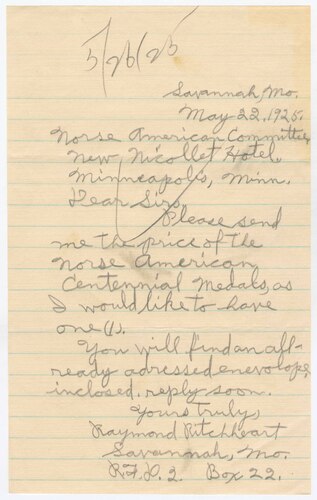 5/26/25
Savannah, Mo.
May 22, 1925.
Norse American Committee,
New Nicollet Hotel,
Minneapolis, Minn.
Dear Sirs,
Please send
me the price of the
Norse American
Centennial Medals, as
I would like to have
one (1).
You will find an all-
ready adressed enevolope,
inclosed. reply soon.
Yours truly,
Raymond Ritchheart
Savannah, Mo.
R.F.D. 2. Box 22.